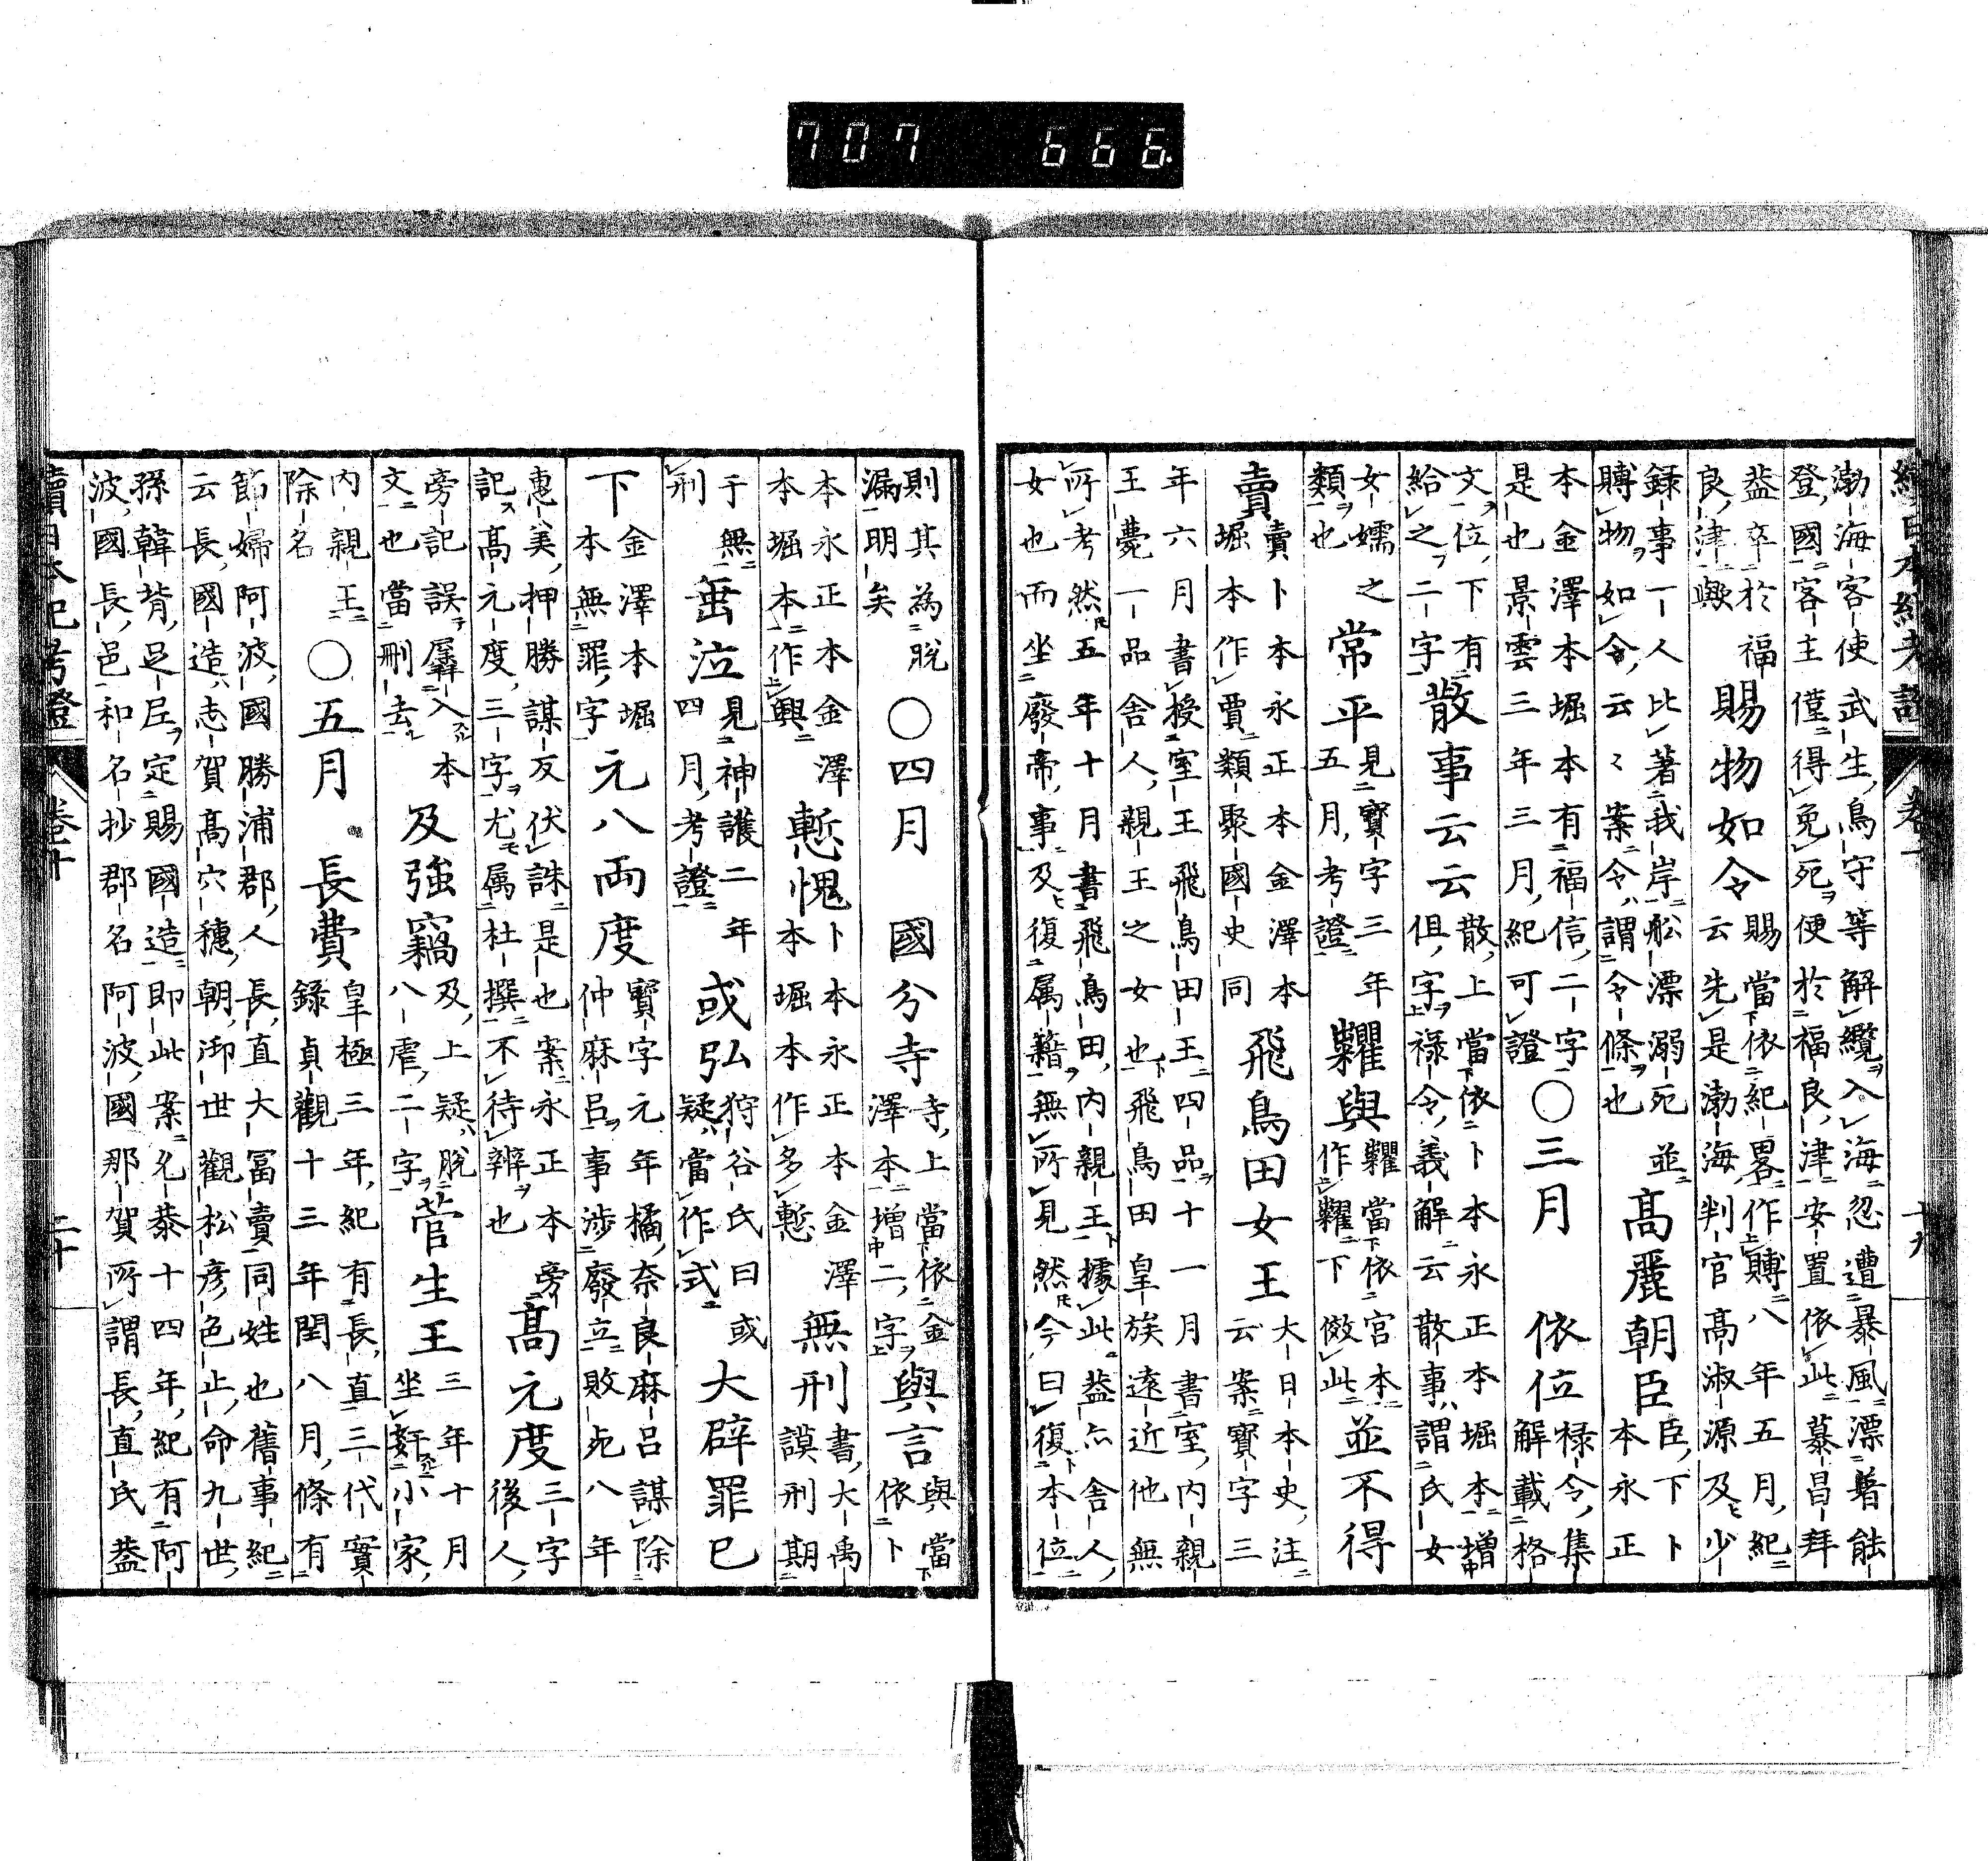 續日本紀考證 卷十 十九
渤海客使武生鳥守等解纜入海忽遭暴風漂着能
登國客主僅得免死便於福良津安置依此慕昌拜
蓋卒於福
良津歟
賜物如令
賜當依紀畧作賻八年五月紀
云先是渤海判官高淑源及少
錄事一人比著我岸舩漂溺死並
賻物如令云〻案令謂令條也
高麗朝臣
臣下卜
本永正
本金澤本堀本有福信二字
是也景雲三年三月紀可證
○三月 依位
祿令集
解載格
文位下有
給之二字
散事云云
散上當依卜本永正本堀本增
但字祿令義解云散事謂氏女
女嬬之
類也
常平
見寶字三年
五月考證
糶與
糶當依宮本
作糴下倣此
並不得
賣
賣卜本永正本金澤本
堀本作賈類聚國史同
飛鳥田女王
大日本史注
云案寶字三
年六月書授室王飛鳥田王四品十一月書室内親
王薨一品舍人親王之女也飛鳥田皇族遠近他無
所考然五年十月書飛鳥田内親王據此蓋亦舍人
女也而坐廢帝事及復属籍無所見然今曰復本位
則其為脫
漏明矣
○四月 國分寺
寺上當依金
澤本增二字
與言
與當
依卜
本永正本金澤
本堀本作興
慙愧
卜本永正本金澤
本堀本作多慙
無刑
書大禹
謨刑期
于無
刑
垂泣
見神護二年
四月考證
或弘
狩谷氏曰或
疑當作式
大辟罪已
下
金澤本堀
本無罪字
元八両度
寶字元年橘奈良麻呂謀除
仲麻呂事涉廢立敗死八年
惠美押勝謀反伏誅是也案永正本旁
記高元度三字尤属杜撰不待辨也
高元度
三字
後人
旁記誤羼入本
文也當刪去
及強竊
及上疑脫
八虐二字
菅生王
三年十月
坐奸小家
内親王
除名
○五月 長費
皇極三年紀有長直三代實
錄貞觀十三年閏八月條有
節婦阿波國勝浦郡人長直大冨賣同姓也舊事紀
云長國造志賀高穴穗朝御世觀松彦色止命九世
孫韓背足尼定賜國造即此案允恭十四年紀有阿
波國長邑和名抄郡名阿波國那賀所謂長直氏蓋
續日本紀考證 卷十 二十
707 666